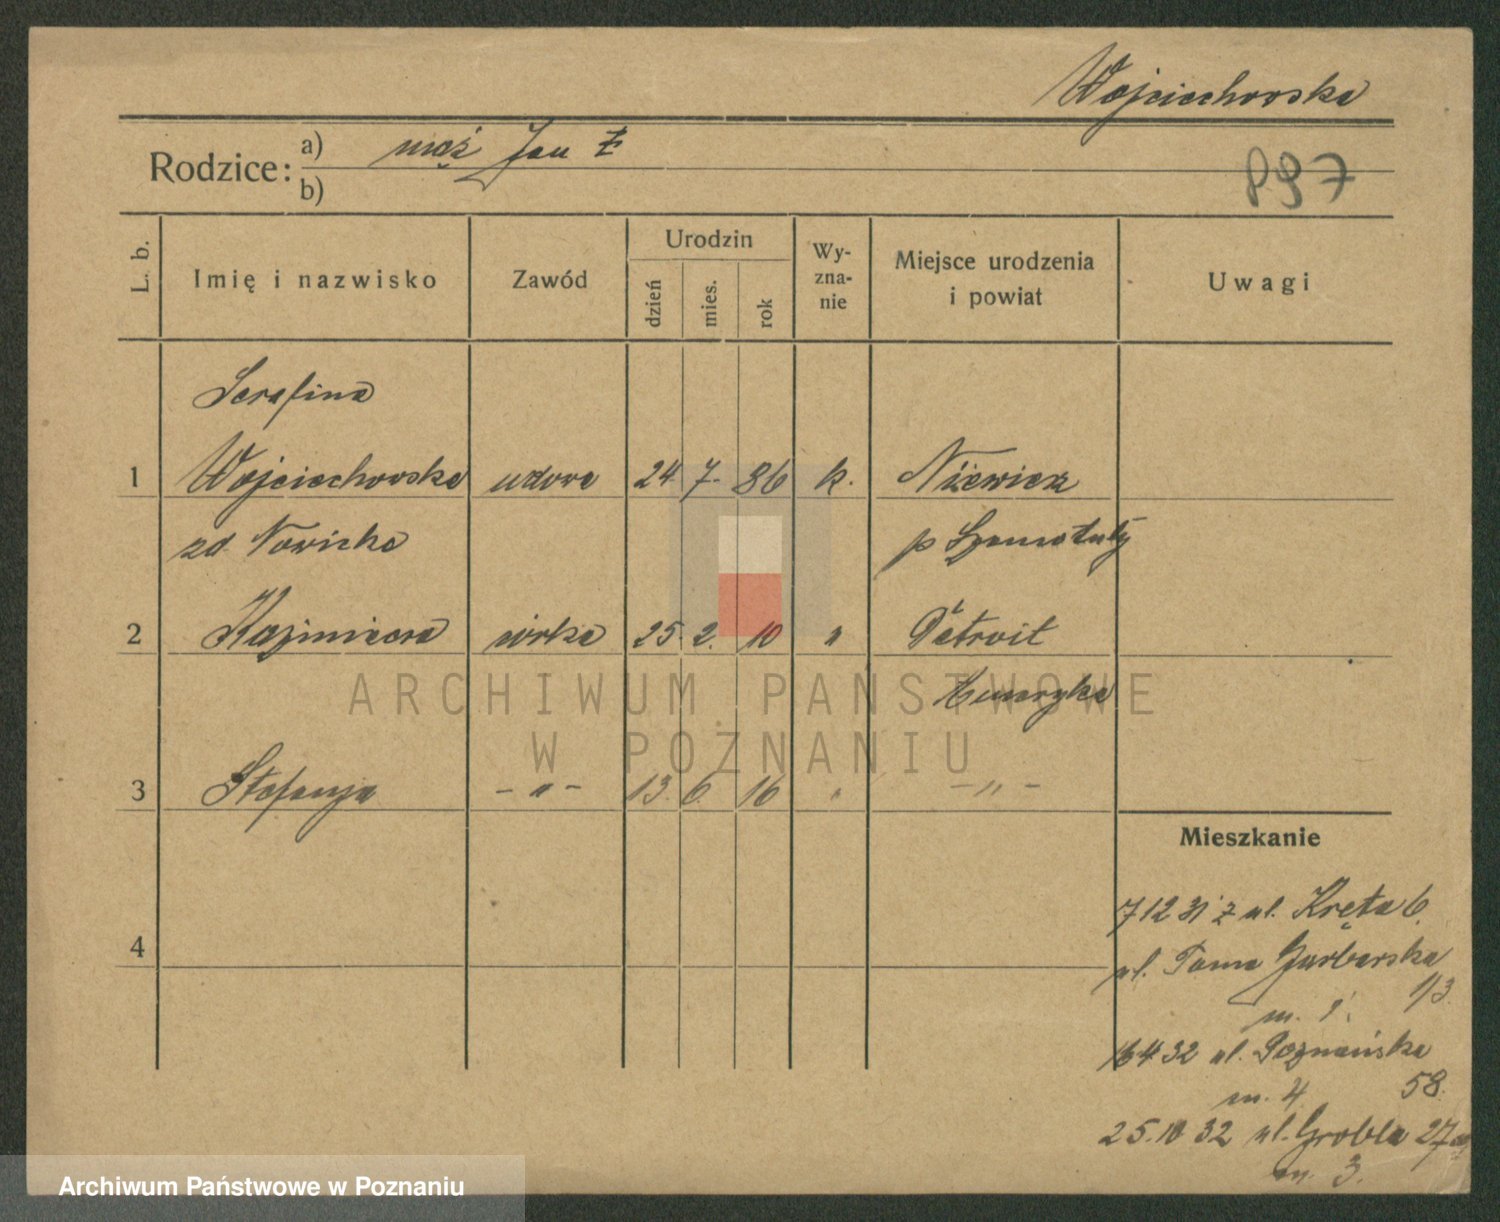 Wojciechowska
Rodzice: a) mąż Jan Ł
b)
897
L. b. Imię i nazwisko Zawód Urodzin dzień mies. rok Wy-zna-nie Miejsce urodzenia i powiat Uwagi
Serafina
1 Wojciechowska wdowa 24 7. 86 k. Niżewice
zd. Nowicka p Szamotuły
2 Kazimiera córka 25. 2. 10 " Detroit
Ameryka
3 Stefanja – " – 13. 6. 16 " – " –
Mieszkanie
4
7 12 31 z ul. Kręta 6.
ul. Tama Garbarska
1/3
m. 1.
16 4 32 ul. Poznańska
58.
m. 4
25.10 32 ul. Grobla 27a
m. 3.
ARCHIWUM PAŃSTWOWE
W POZNANIU
Archiwum Państwowe w Poznaniu